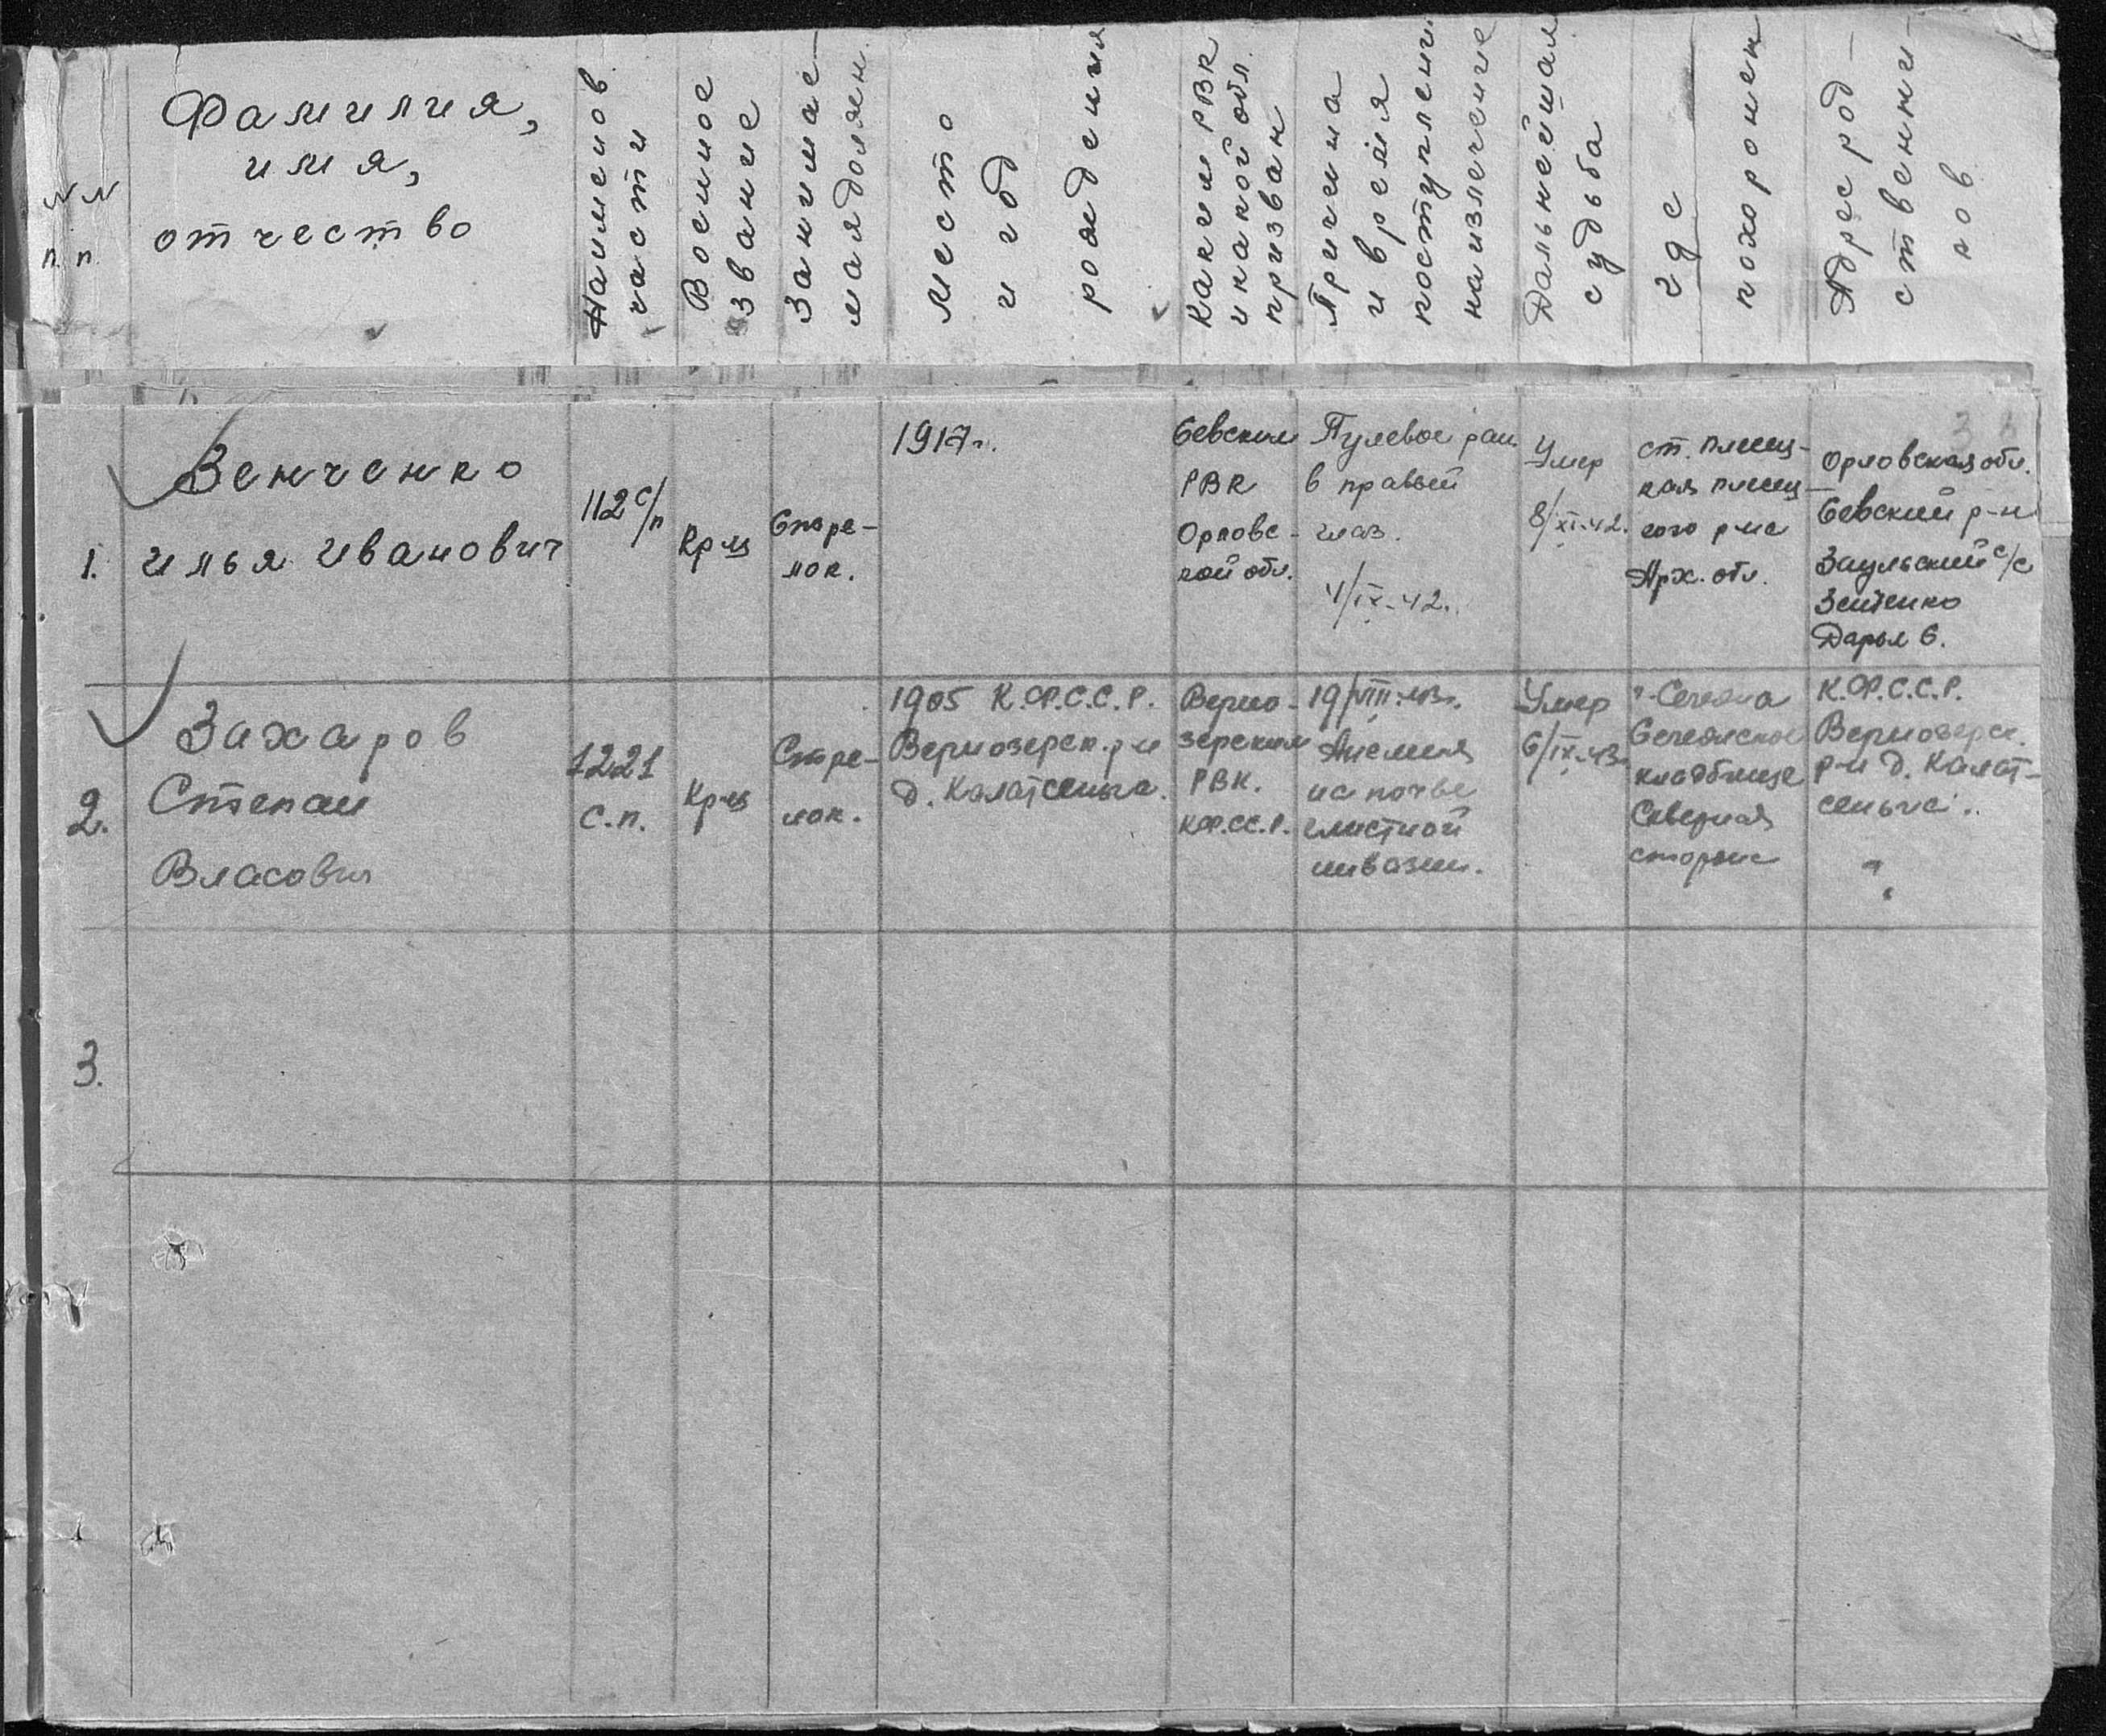 NN
п. п.
Фамилия,
имя,
отчество
Наименов.
части
Военное
звание
Занимае-
мая должн.
Место
и год
рождения
Каким РВК
и какой обл.
призван
Причина
и время
поступлени
на излечение
Дальнейшая
судьба
где
похоронен
Адрес род-
ственни-
ков
1.
Зенченко
Илья Иванович
112 с/п
Кр-ц
Стре-
лок.
1917г.
Севским
РВК
Орловс-
кой обл.
Пулевое ран.
в правый
глаз.
4/IX-42.
Умер
8/XI-42.
ст. Плесец-
кая Плесец-
кого р-на
Арх. обл.
Орловская обл.
Севский р-н
Заульский с/с
Зенченко
Дарья С.
2.
Захаров
Степан
Власович
1221
с.п.
Кр-ц
Стре-
лок.
1905 К.Ф.С.С.Р.
Ведлозерск. р-н
д. Калатсельга.
Ведло-
зерским
РВК.
КФ.СС.Р.
19/VIII-43г.
Анемия
на почве
глистной
инвазии.
Умер
6/IX-43г.
г. Сегежа
Сегежское
кладбище
Северная
сторона
К.Ф.С.С.Р.
Ведлозерск.
р-н д. Калат-
сельга.
"
3.